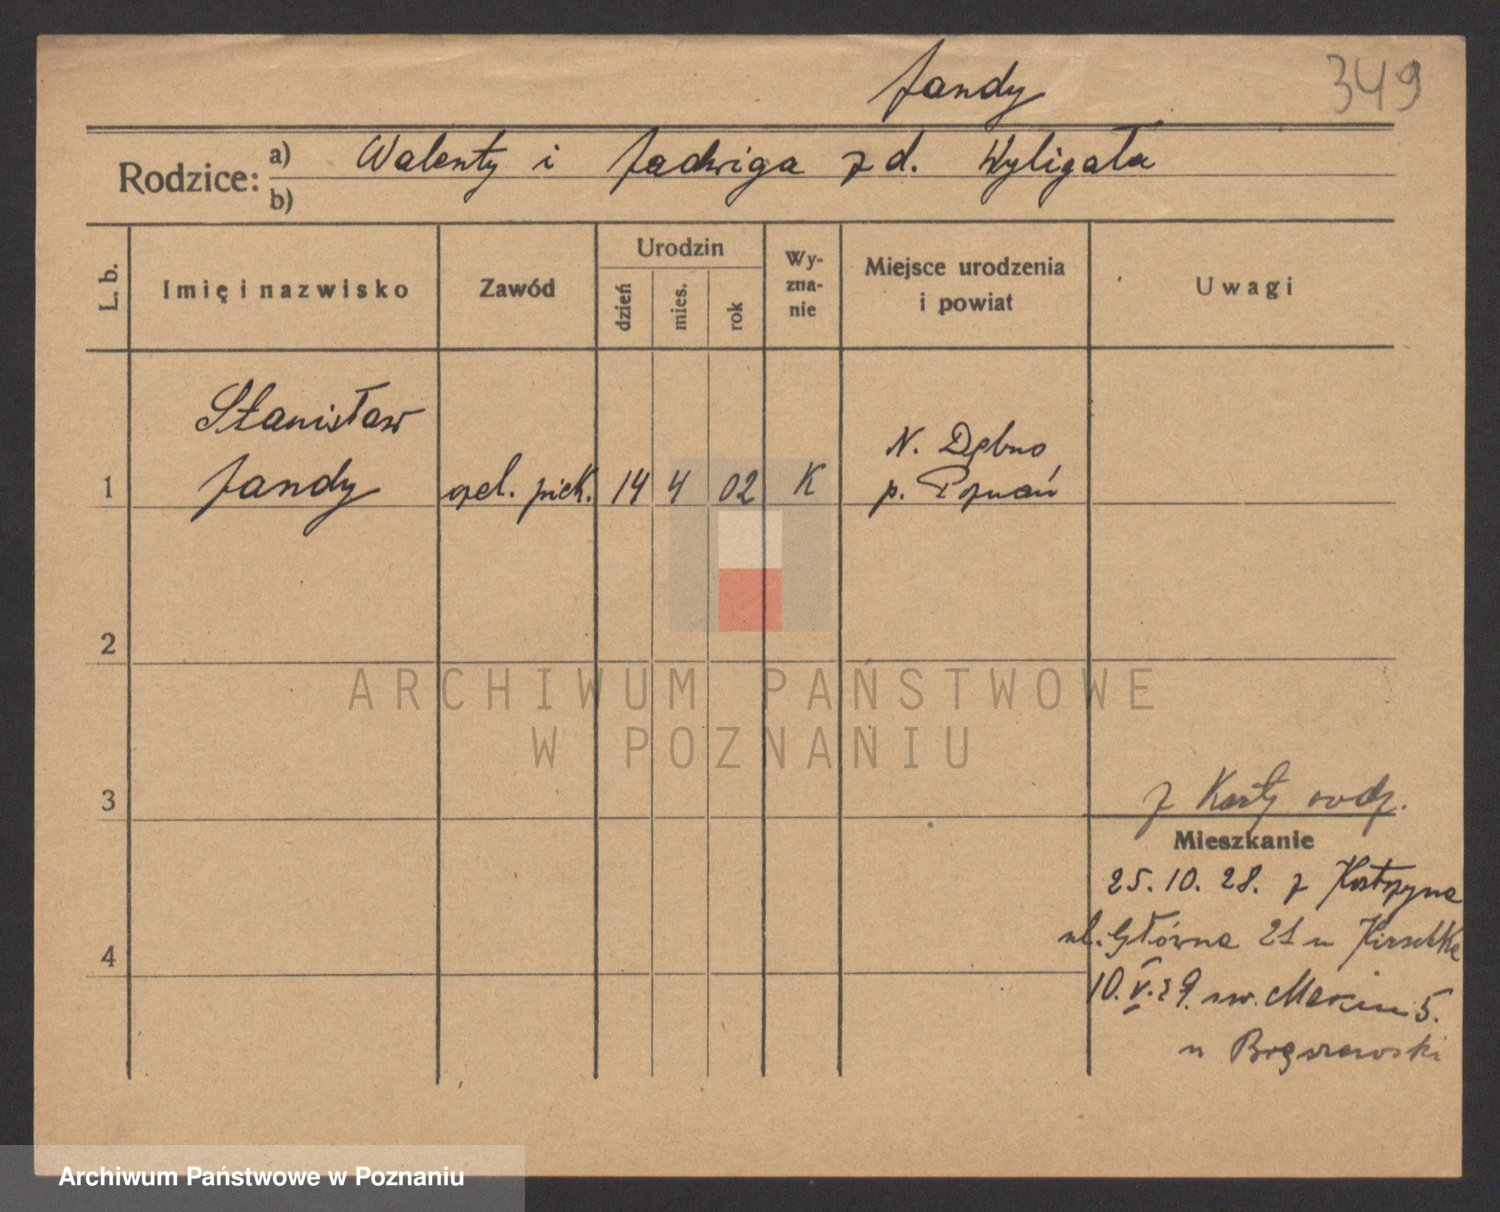 Jandy
349
Rodzice:
a) Walenty i Jadwiga z d. Wyligała
b)
L. b.
Imię i nazwisko
Zawód
Urodzin
dzień
mies.
rok
Wy-
zna-
nie
Miejsce urodzenia
i powiat
Uwagi
Stanisław
Jandy
1
czel. piek.
14
4
02
K
N. Dębno
p. Poznań
2
3
4
z Karty rodz.
Mieszkanie
25. 10. 28. z Kostrzyna
ul. Główna 21 u
10.V.29 św. Marcin 5.
u
ARCHIWUM PAŃSTWOWE
W POZNANIU
Archiwum Państwowe w Poznaniu